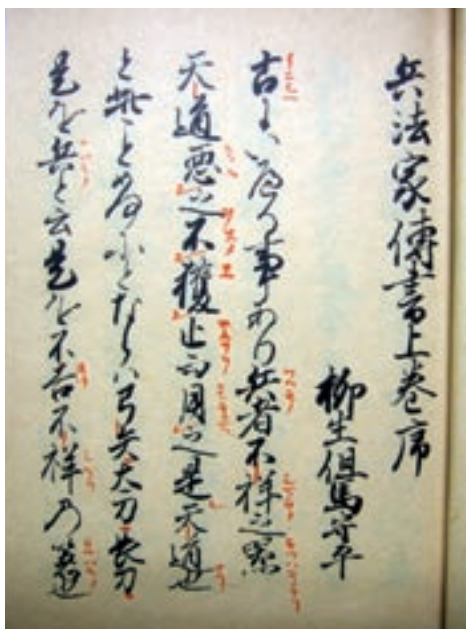 兵法家傳書上巻序
柳生但馬守平
古にいへる事あり兵者不祥之器
天道悪之不獲止而用之是天道也
と此こといかにとならハ弓矢太刀長刀
是を兵と云是を不吉不祥の器也